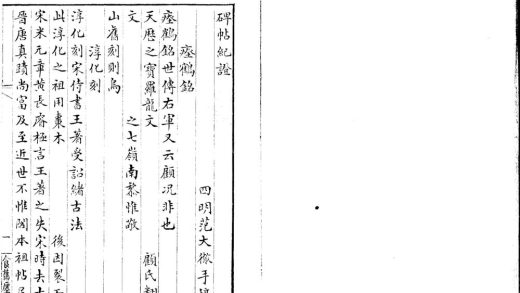 碑帖紀證
四明范大澈手
瘞鶴銘
瘞鶴銘世傳右軍又云顧況非也
天歷之寶羅龍文 顧氏翻
文 之七嶺南黎惟敬
山舊刻則烏
淳化刻
淳化刻宋侍書王著受詔緒古法
此淳化之祖用棗木 後因裂
宋米元章黃長睿極言王著之失宋時去
晉唐真蹟尚富及至近世不惟閣本祖帖
一